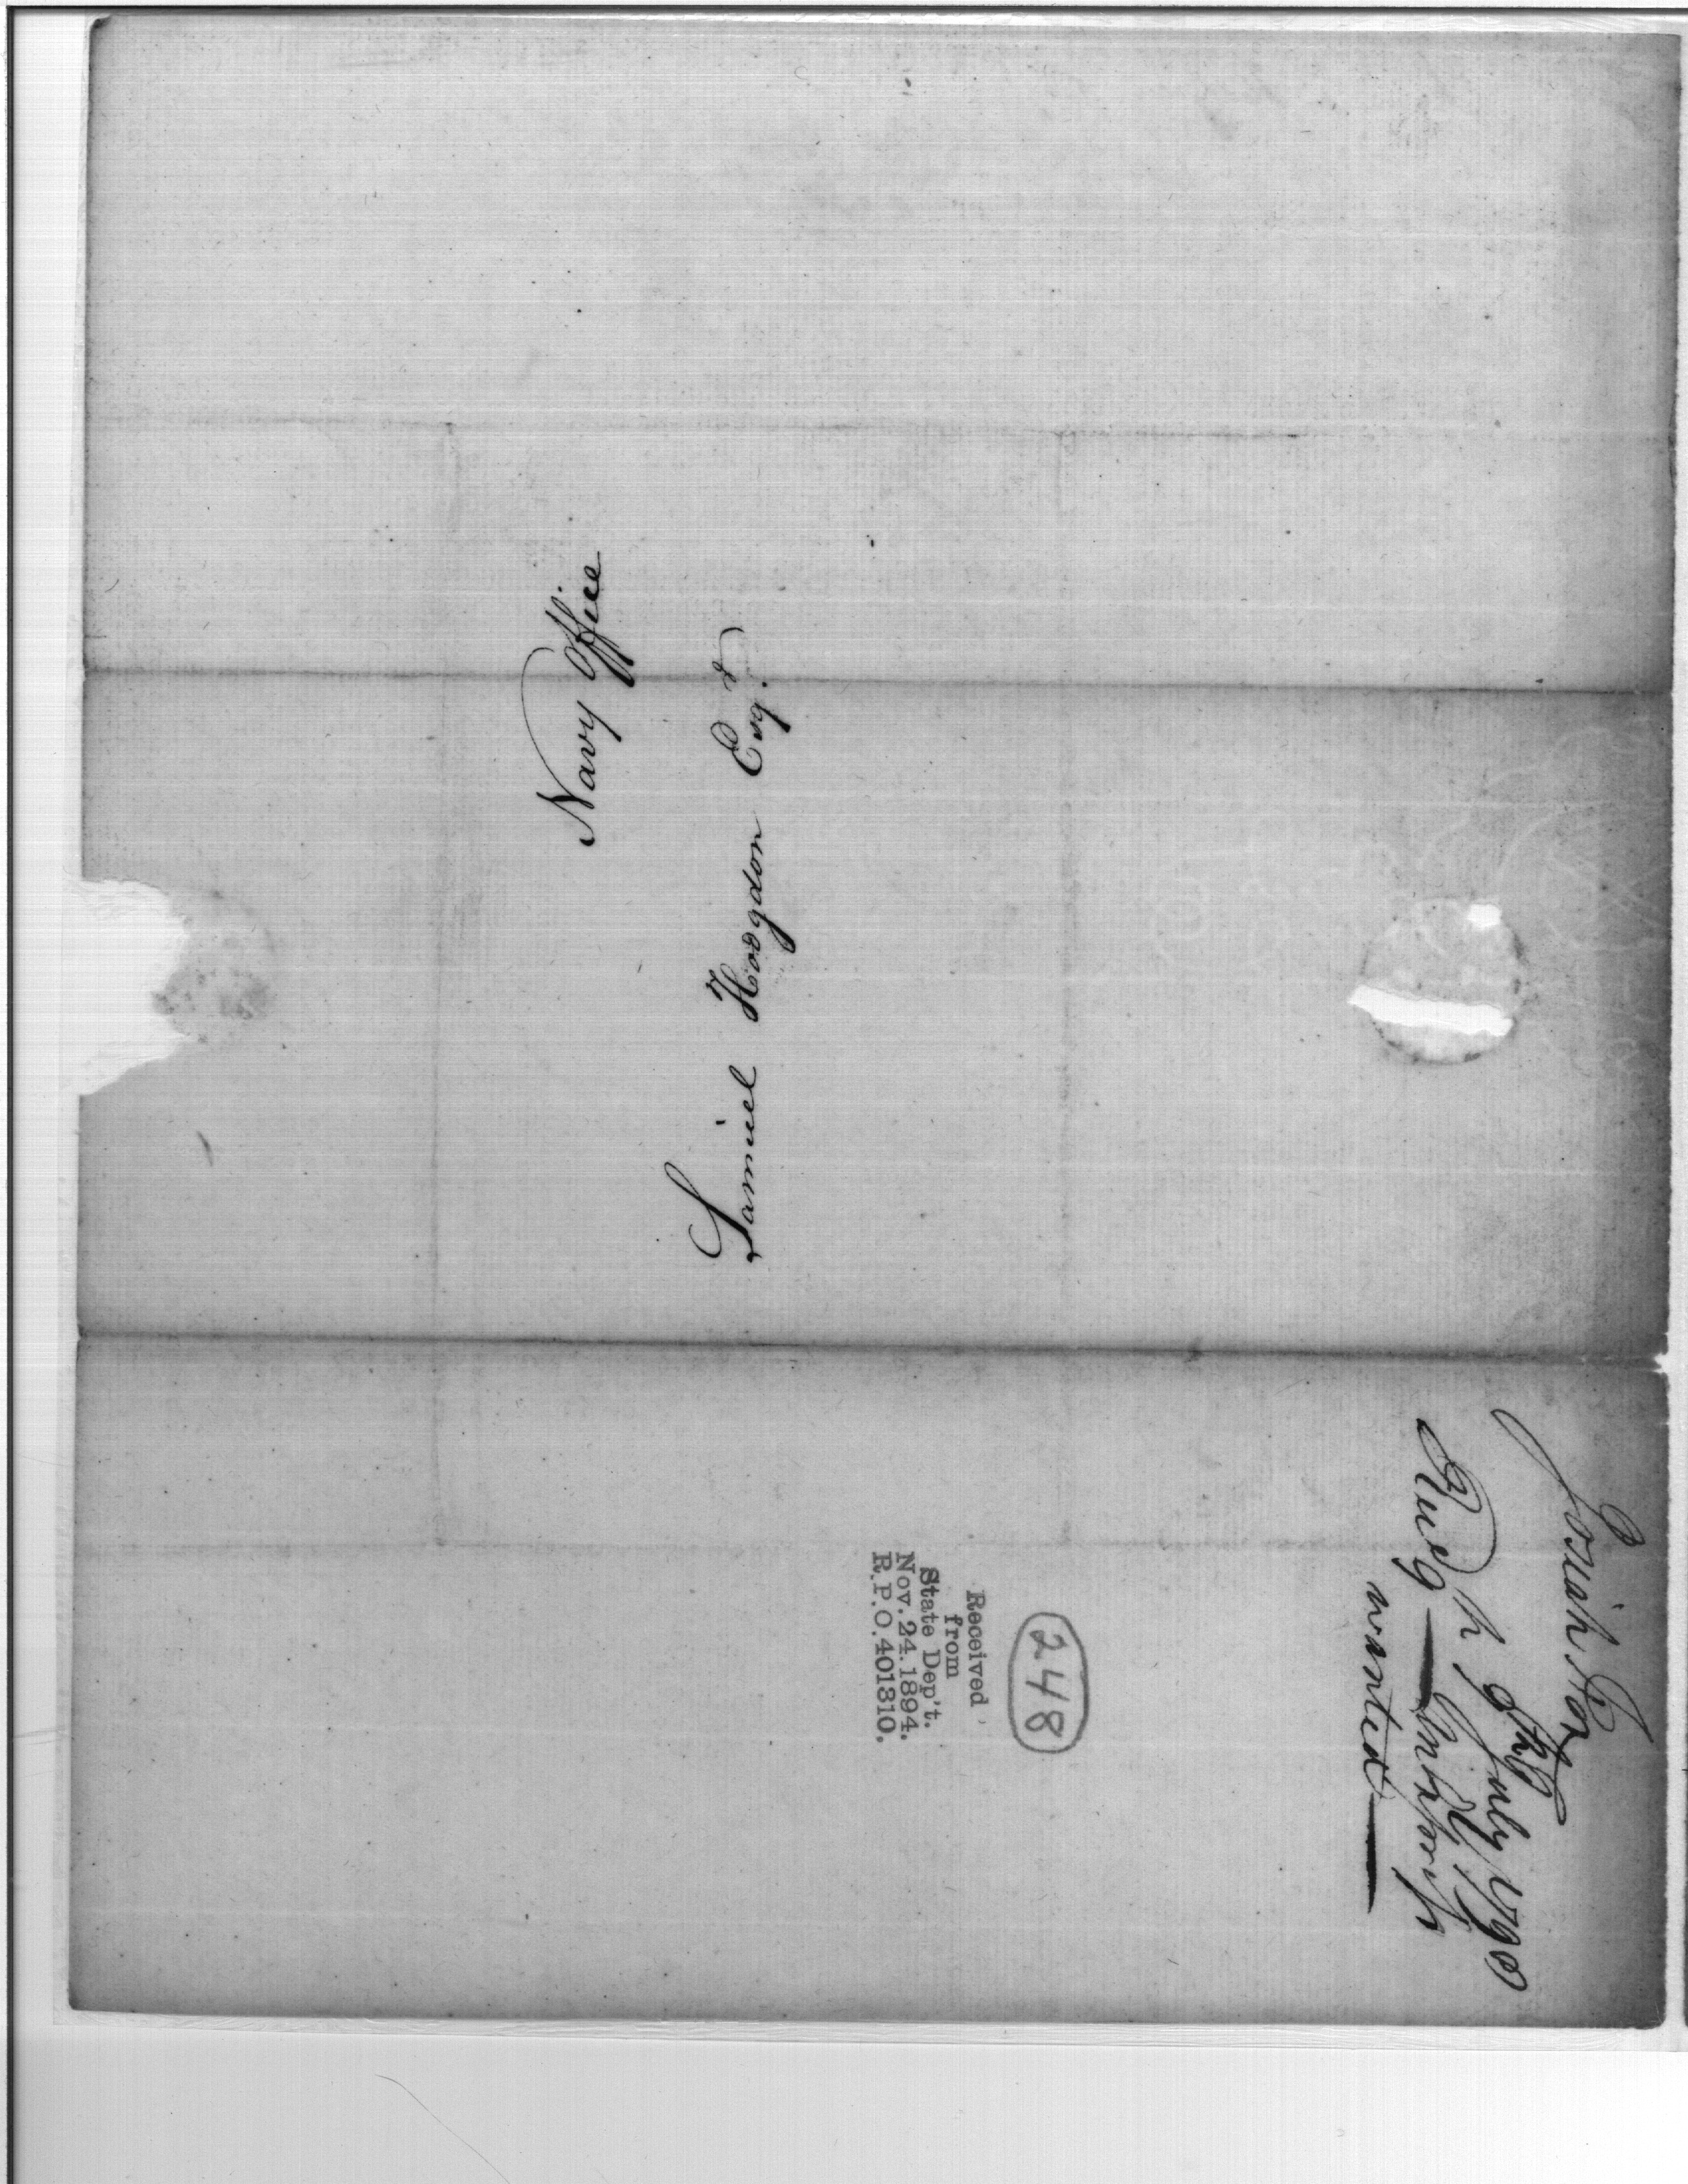 Navy Office
Samuel Hodgdon Esqr.
Josiah Fox
9th July 1798
wanted
248
Received
from
State Dep't.
Nov.24.1894.
R.P.O.401310.